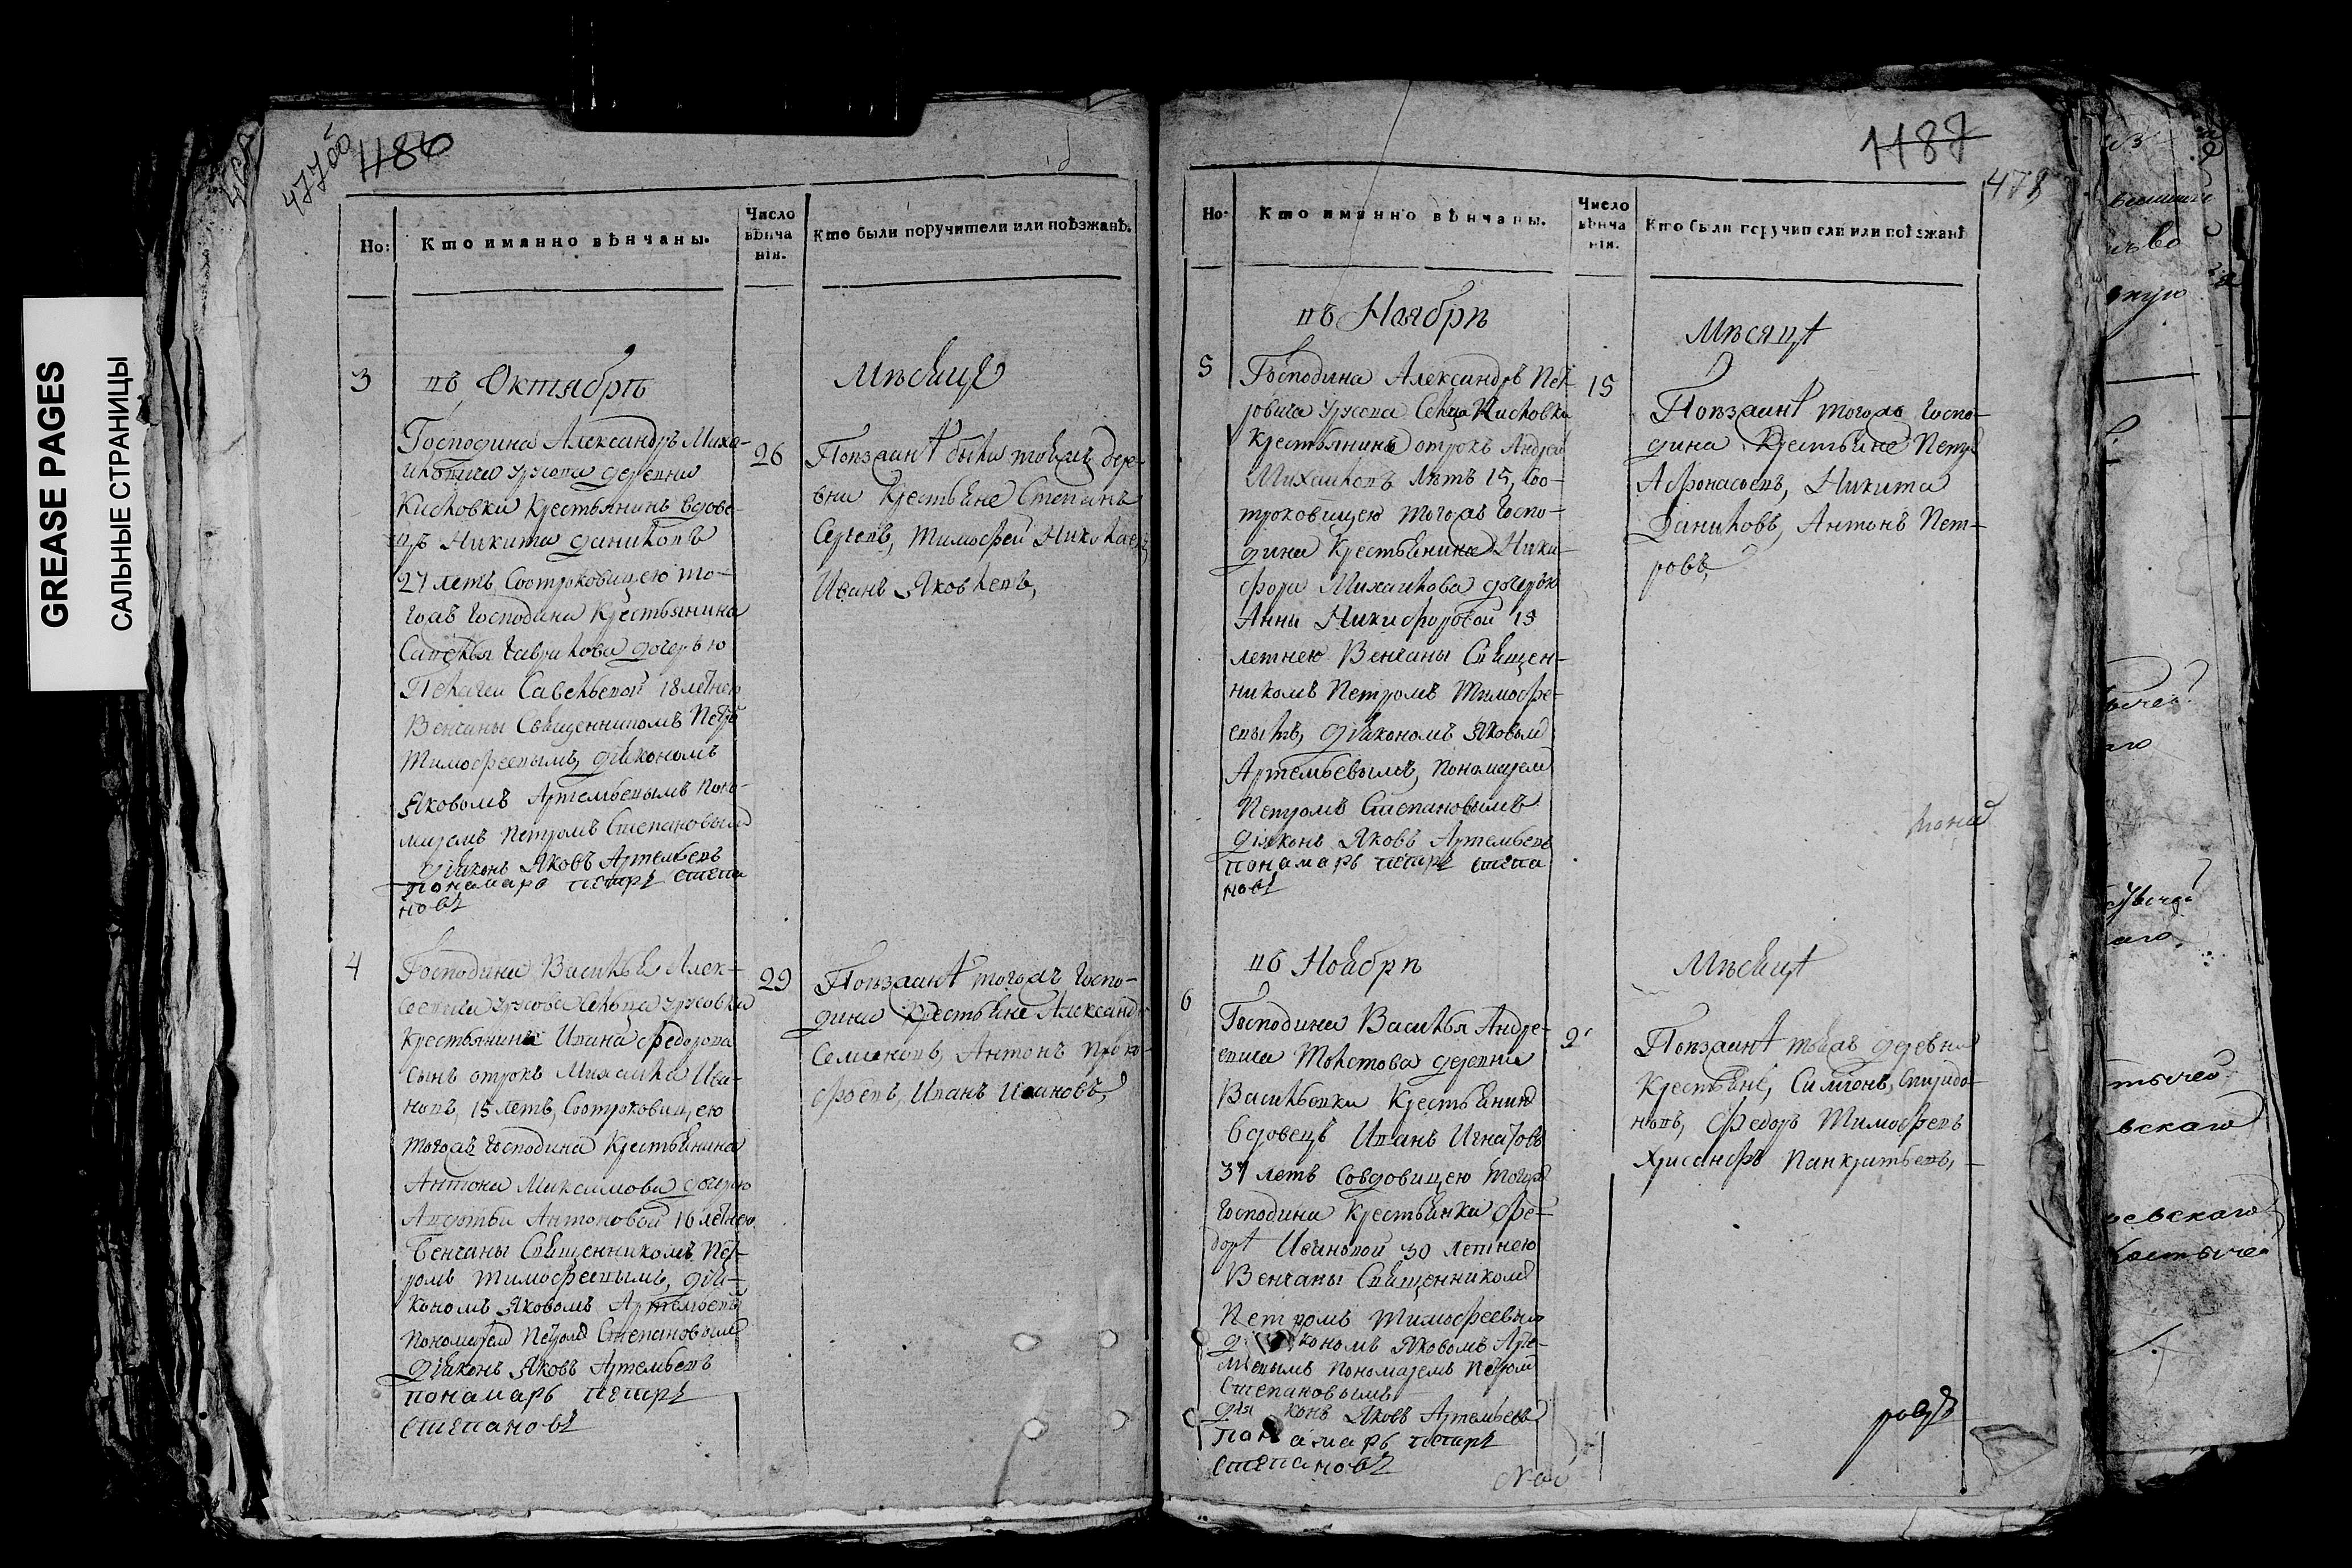 GREASE PAGES
САЛЬНЫЕ СТРАНИЦЫ
477об
1186
Но:
Кто иманно вѣнчаны.
Число вѣнча нія.
Кто были поручители или поѣзжанѣ.
3
въ Октябрѣ
Мѣсяце
Господина Александръ Миха-
иловича Урусова деревни
Кисловки Крестьянинъ вдове-
цъ Никита Даниловъ
27 летъ, Соотроковицею то-
гожъ Господина Крестьянина
Савелья Гаврилова дочерью
Пелагеи Савельевой 18 летнею
Венчаны Священникомъ Петро
Тимофеевымъ, діякономъ
Яковомъ Артемьевымъ поно-
маремъ Петромъ Степановым
діяконъ Яковъ Артемьевъ
понамарь петръ степа
новъ
26
Поезжанѣ были тойжъ дере-
вни Крестьяне Степанъ
Сергеевъ, Тимофей Николаевъ
Иванъ Яковлевъ,
4
Господина Василья Алек-
сеевича Урусова Сельца Урусовки
Крестьянина Ивана Федорова
сынъ отрокъ Михаила Ива-
новъ, 15 летъ, Соотроковицею
тогожъ Господина Крестьянина
Антона Максимова дочерью
Авдотьи Антоновой 16 летнею
Венчаны Священникомъ Пет-
ромъ Тимофеевымъ, дія-
кономъ Яковомъ Артемьевы
Пономарем Петром Степановым
діяконъ Яковъ Артемьевъ
понамарь петръ
степановъ
29
Поезжанѣ тогожъ Госпо-
дина Крестьяне Александръ
Семеновъ, Антонъ Проко-
фьевъ, Иванъ Ивановъ,
1187
478
Но:
Кто иманно вѣнчаны.
Число вѣнча нія.
Кто были поручители или поѣзжанѣ
въ Ноябрѣ
Мѣсяцѣ
5
Господина Александръ Пет-
ровича Урусова Сельца Кисловки
Крестьянинъ отрокъ Андрей
Михаиловъ летъ 15, Соо-
троковицею тогожъ Госпо-
дина Крестьянина Ники-
фора Михаилова дочерью
Анны Никифоровой 15
летнею Венчаны Священ-
никомъ Петромъ Тимофе-
евымъ, діякономъ Яковым
Артемьевымъ, Пономарем
Петромъ Степановымъ
діяконъ Яковъ Артемьевъ
понамарь петръ степа
новъ
15
Поезжанѣ тогожъ Госпо-
дина Крестьяне Петръ
Афонасьевъ, Никита
Даниловъ, Антонъ Пет-
ровъ,
въ Ноябрѣ
Мѣсяцѣ
6
Господина Василья Андре-
евича Толстова деревни
Васильевки Крестьянинъ
вдовецъ Иванъ Игнатовъ
37 летъ Совдовицею тогожъ
Господина Крестьянки Фе-
дорѣ Ивановой 30 летнею
Венчаны Священником
Петромъ Тимофеевым
діякономъ Яковомъ Арте-
мьевымъ Пономаремъ Петром
Степановымъ
діяконъ Яковъ Артемьевъ
понамарь петръ
степановъ
Поезжанѣ тойжъ деревни
Крестьяне, Симионъ Спиридо-
новъ, Федоръ Тимофеевъ
Хрисанфъ Панкратьевъ,